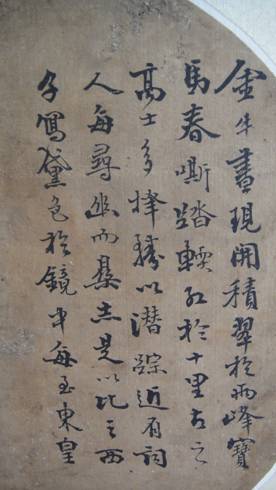 金牛晝現開積翠於兩峰寶
馬春嘶踏輭紅於十里古之
高士多擇勝以潛踪近有詞
人每尋幽而是以比之西
子寫黛色於鏡中每至東皇